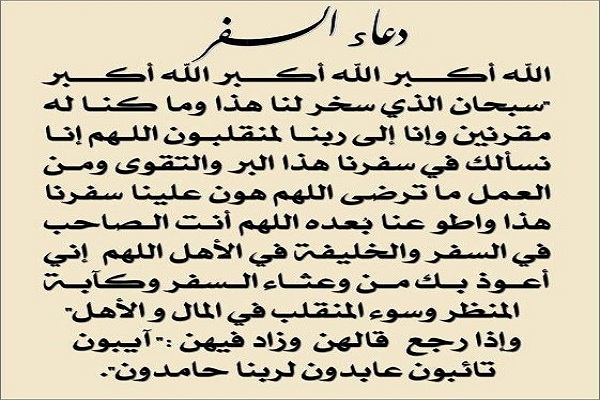 دعاء السفر
الله أكبر الله أكبر الله أكبر
"سبحان الذي سخر لنا هذا وما كنا له
مقرنين وإنا إلى ربنا لمنقلبون اللهم إنا
نسألك في سفرنا هذا البر والتقوى ومن
العمل ما ترضى اللهم هون علينا سفرنا
هذا واطو عنا بُعده اللهم أنت الصاحب
في السفر والخليفة في الأهل اللهم إني
أعوذ بك من وعثاء السفر وكآبة
المنظر وسوء المنقلب في المال و الأهل"
وإذا رجع قالهن وزاد فيهن :"آيبون
تائبون عابدون لربنا حامدون".